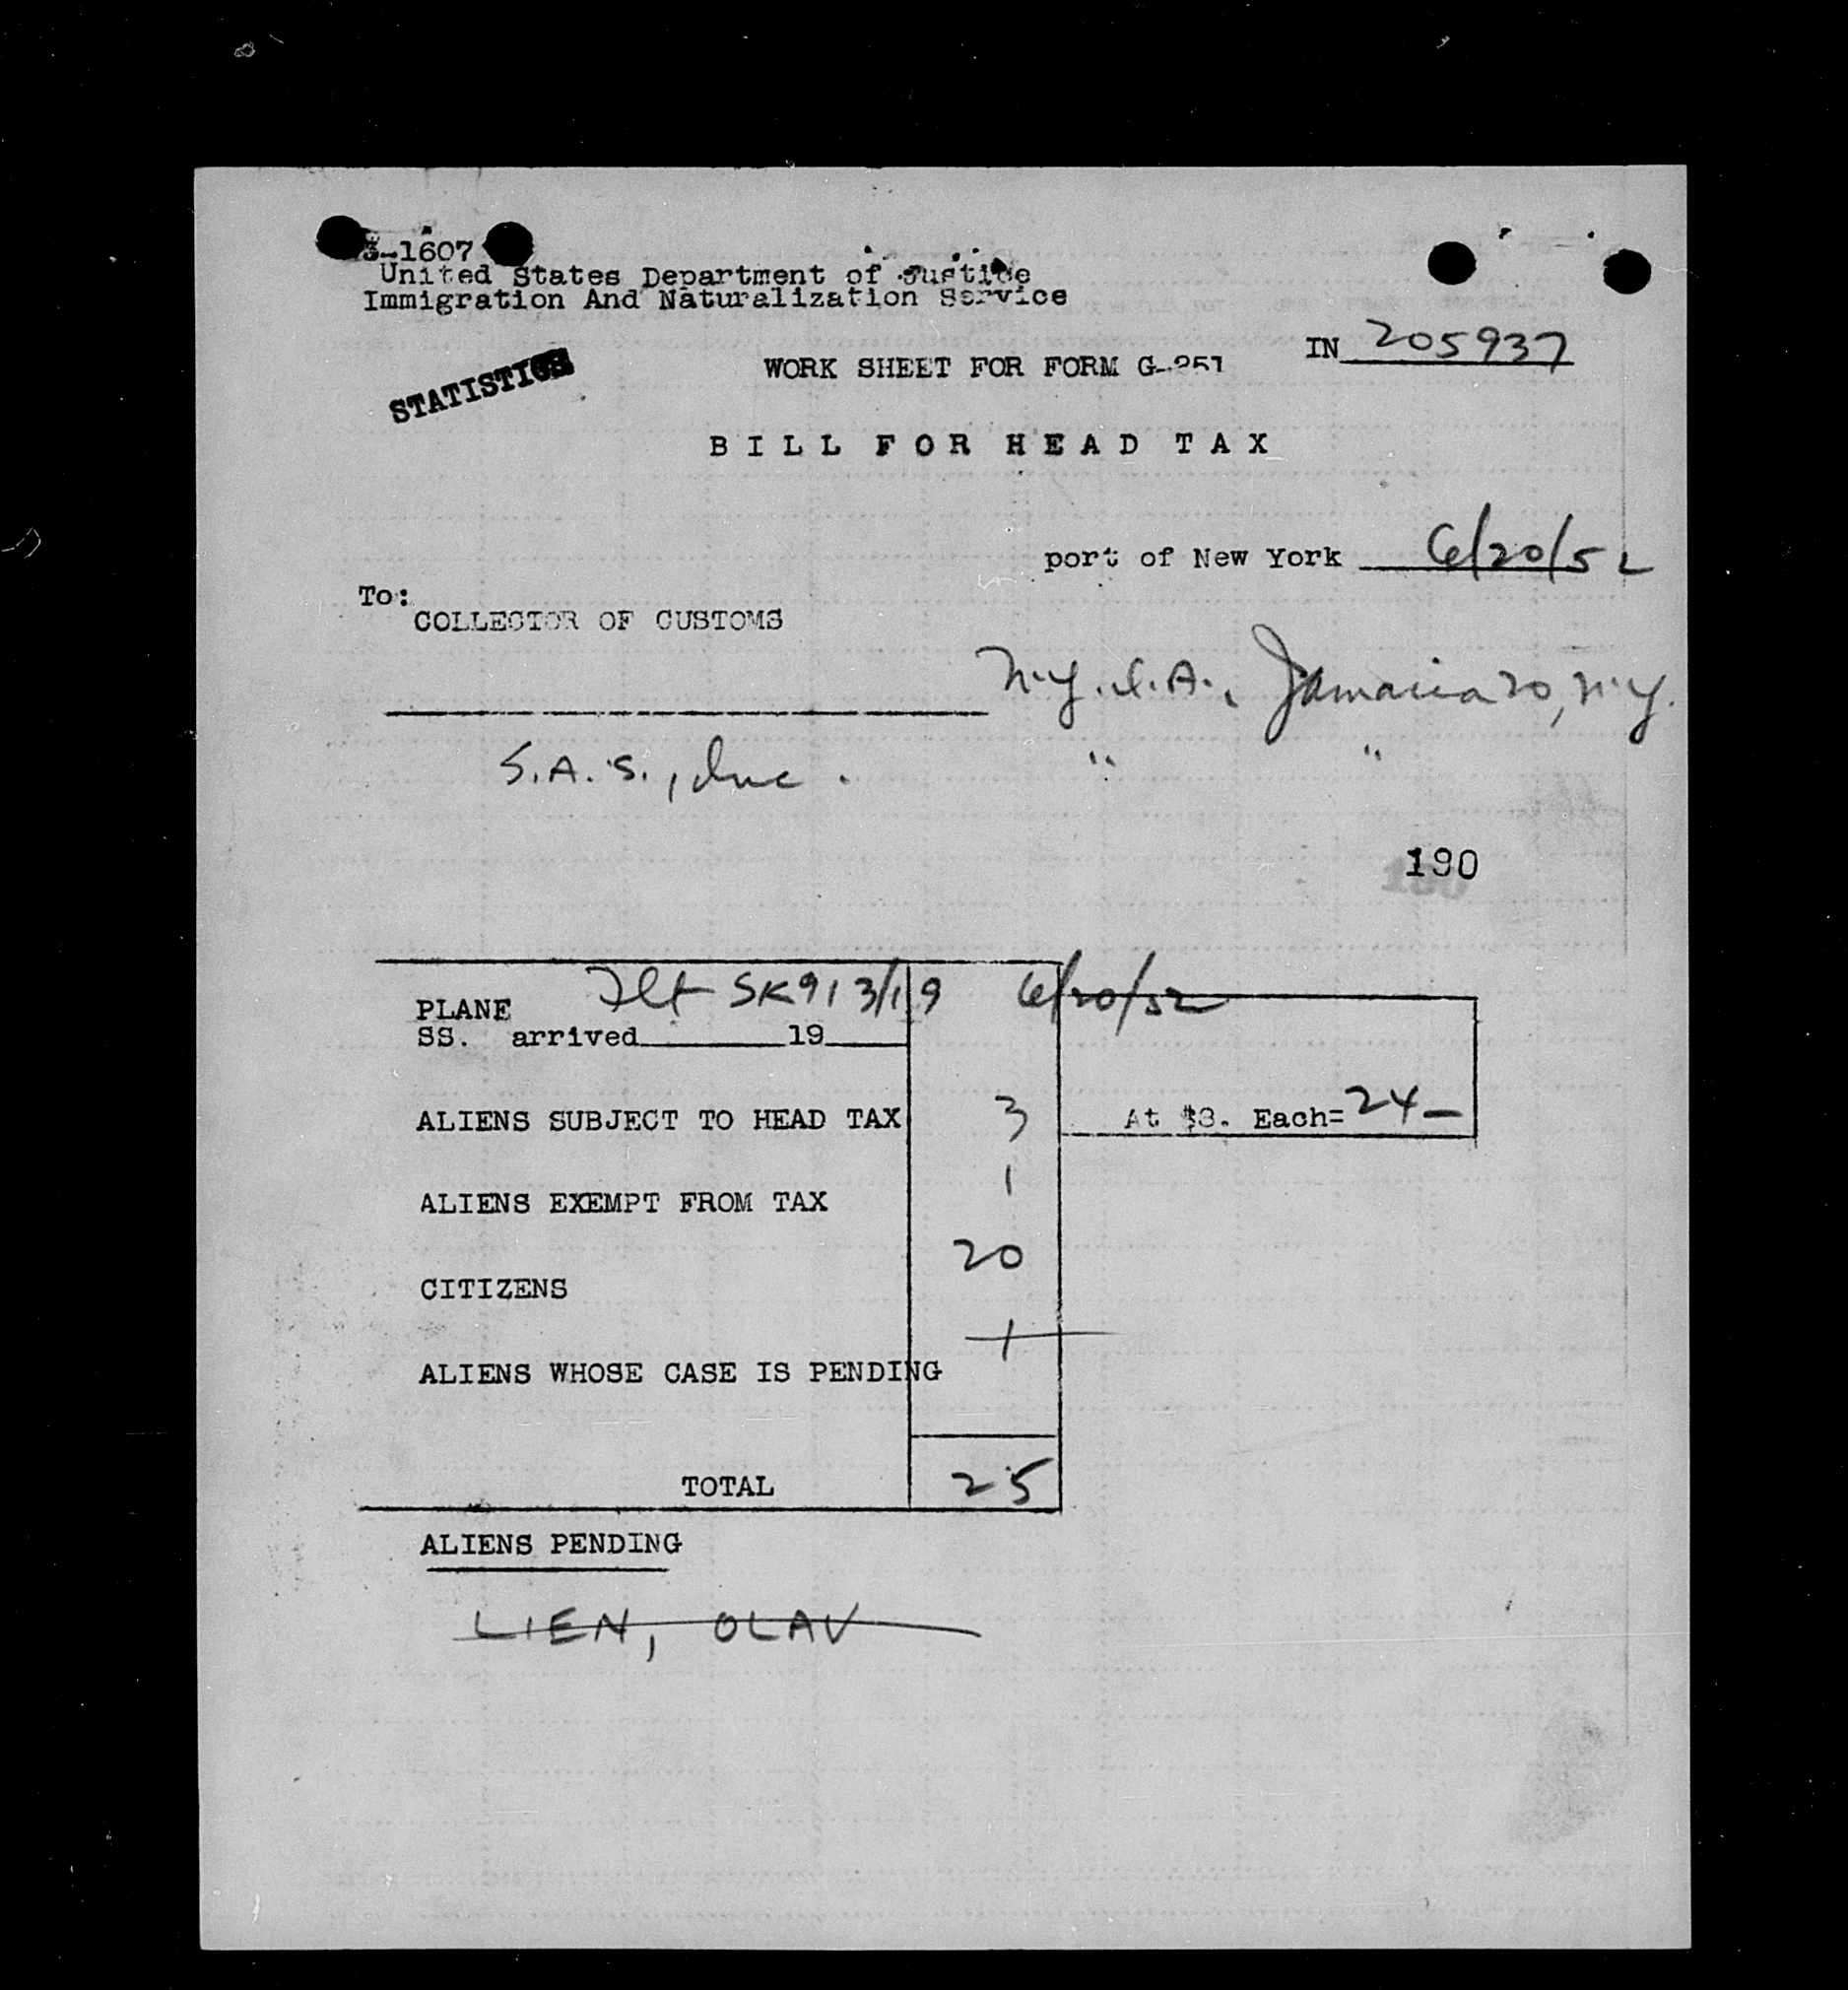 3-1607
United States Department of Justice
Immigration And Naturalization Service
IN 205937
STATISTICS
WORK SHEET FOR FORM G-251
BILL FOR HEAD TAX
port of New York 6/20/52
To:
COLLECTOR OF CUSTOMS
N.Y.I.A., Jamaica 20, N.Y.
S.A.S., Inc. " "
190
PLANE Flt SK913/19 6/20/52
SS. arrived 19
ALIENS SUBJECT TO HEAD TAX 3 At $8. Each= 24—
ALIENS EXEMPT FROM TAX 1
CITIZENS 20
ALIENS WHOSE CASE IS PENDING 1
TOTAL 25
ALIENS PENDING
LIEN, OLAV